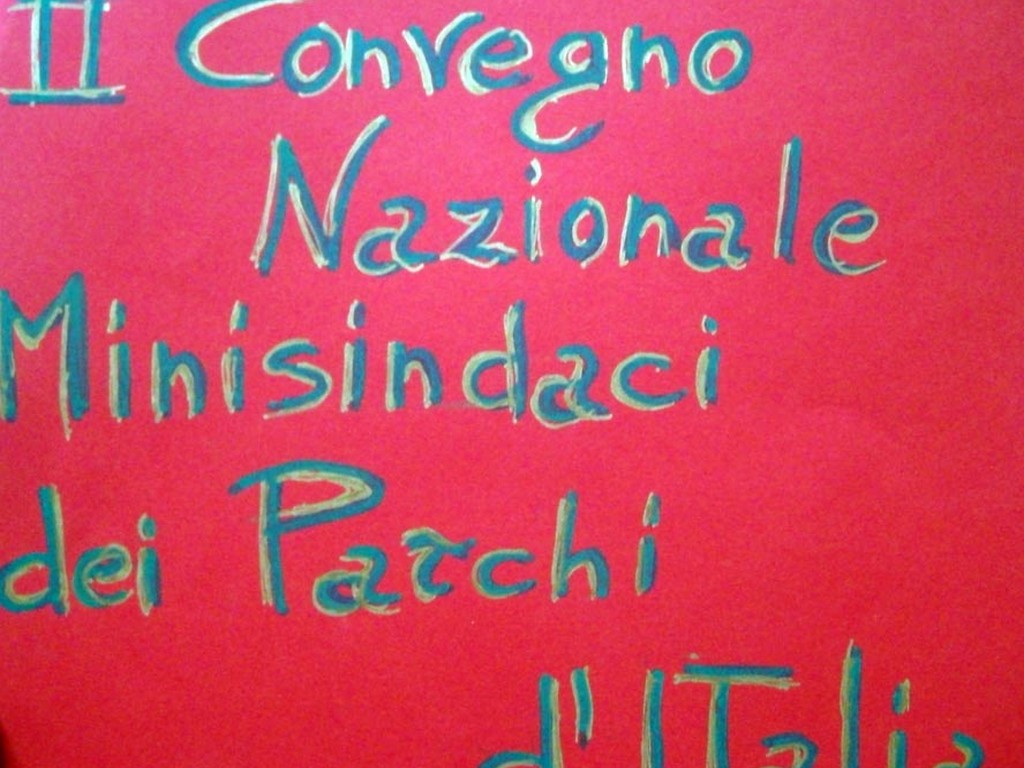 II Convegno
Nazionale
Minisindaci
dei Parchi
d'Italia